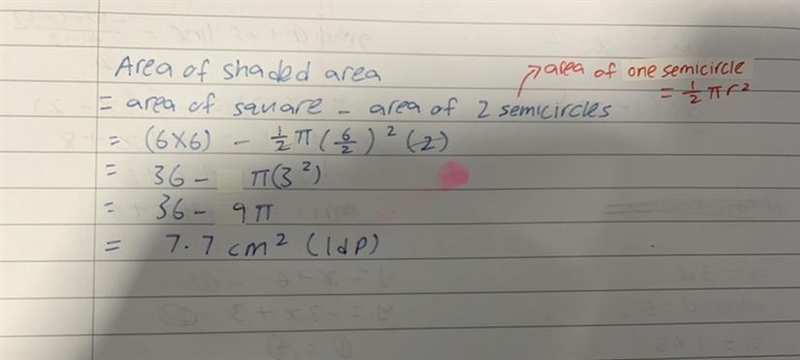 Area of shaded area
= area of square - area of 2 semicircles
→ area of one semicircle
= ½πr²
= (6×6) - ½π(6/2)²(2)
= 36 - π(3²)
= 36 - 9π
= 7.7 cm² (1dp)